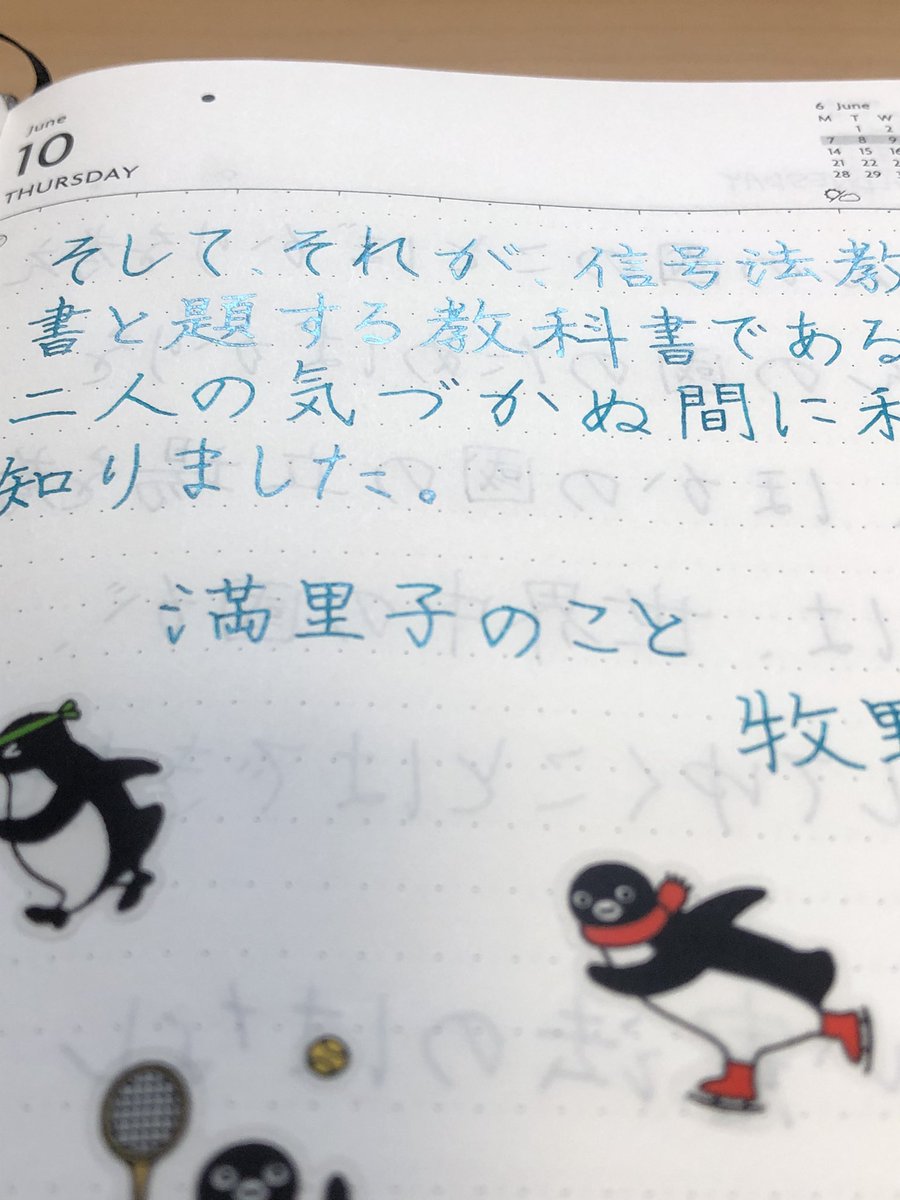 June
10
THURSDAY
6 June
M T W
1 2
7 8 9
14 15 16
21 22 2
28 29 3
そして、それが、信号法教
書と題する教科書である
二人の気づかぬ間に私
知りました。
満里子のこと
牧野